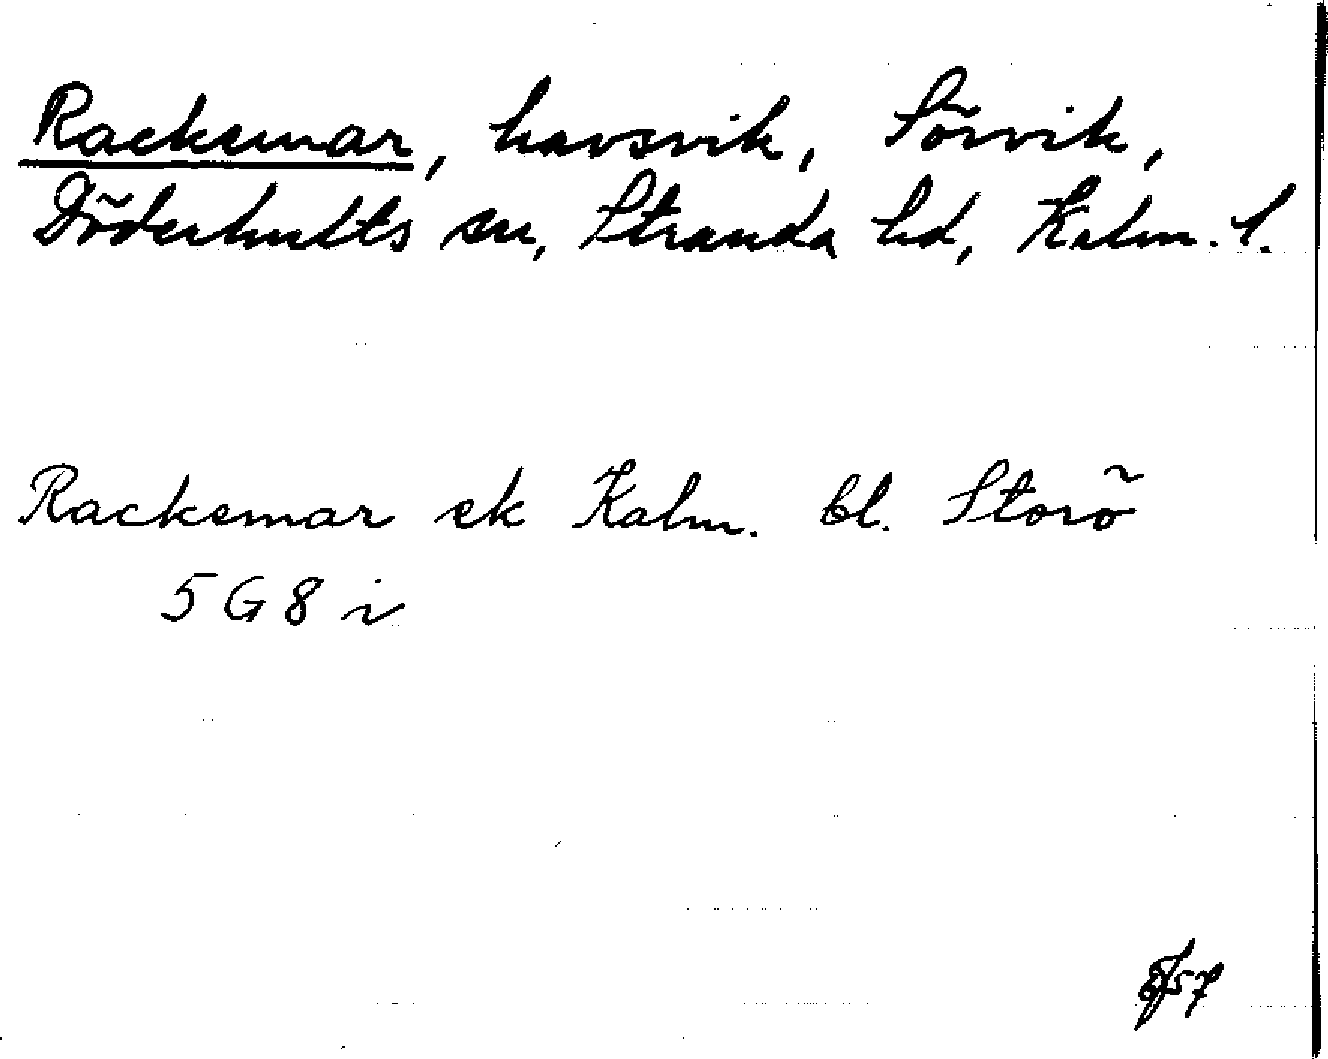 Rackemar, havsvik, Sörvik,
Döderhults sn, Stranda hd, Kalm. l.
Rackemar ek Kalm. bl. Storö
5 G 8 i